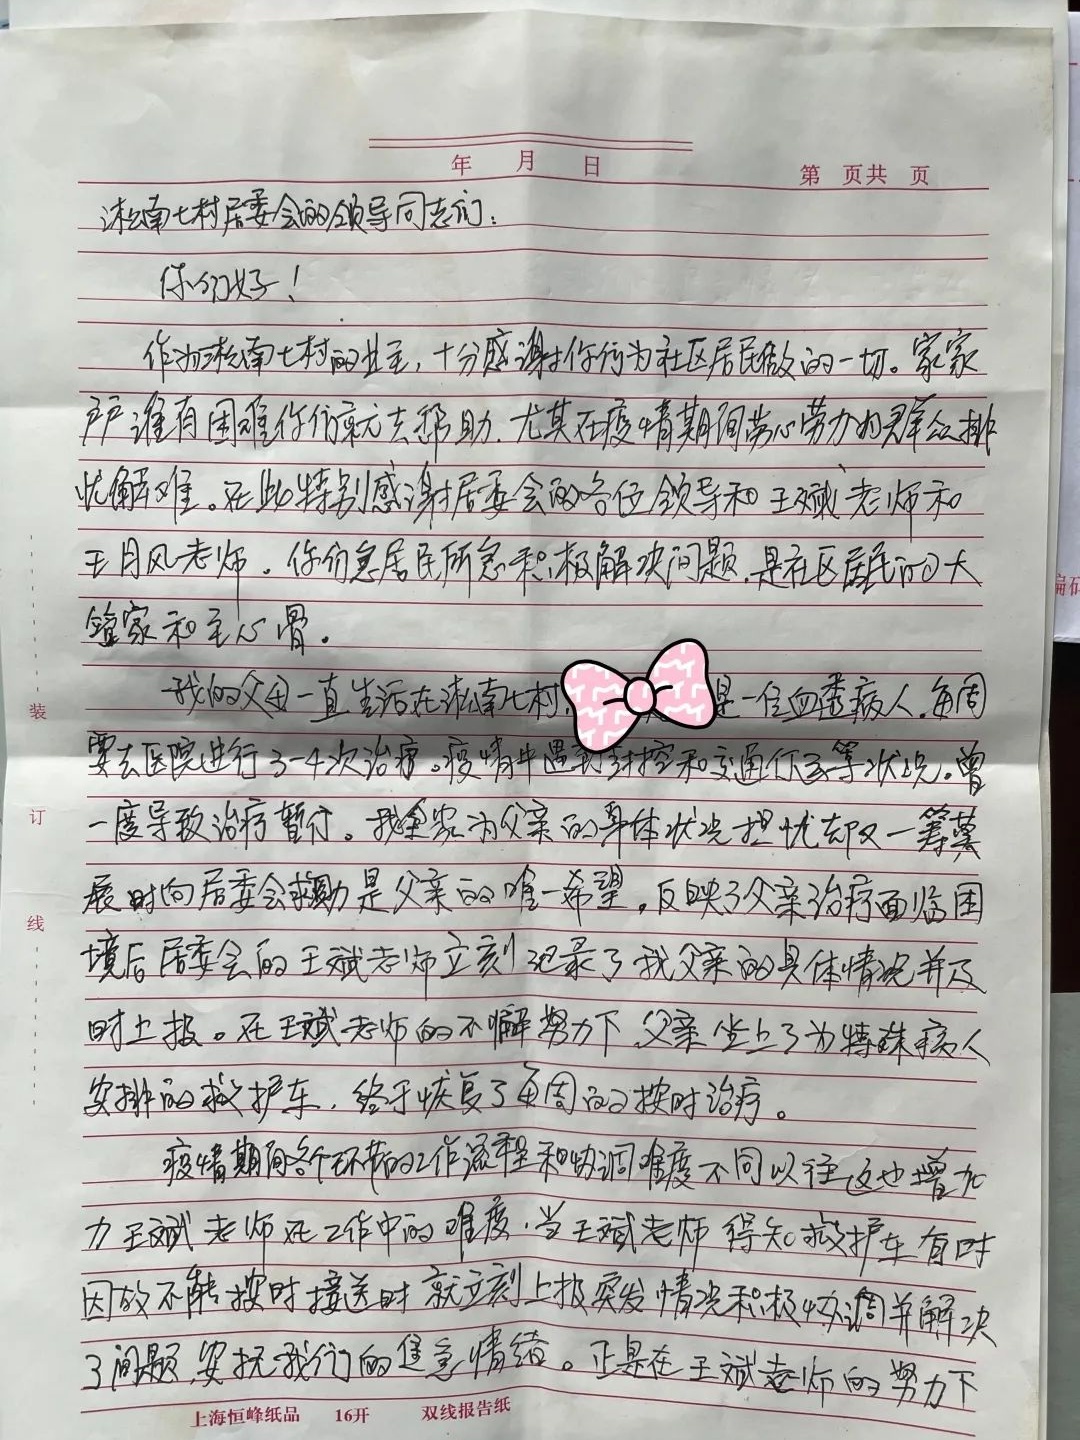 年 月 日
第 页共 页
淞南七村居委会的领导同志们:
你们好!
作为淞南七村的业主,十分感谢你们为社区居民做的一切。家家
户户谁有困难你们就去帮助,尤其在疫情期间劳心劳力为群众排
忧解难。在此特别感谢居委会的各位领导和王斌老师和
王月风老师。你们急居民所急积极解决问题,是社区居民的大
管家和主心骨。
我的父母一直生活在淞南七村,是一位血透病人,每周
要去医院进行3-4次治疗。疫情中遇到封控和交通等状况,曾
一度导致治疗暂停。我全家为父亲的身体状况担忧却又一筹莫
展时向居委会求助是父亲的唯一希望,反映了父亲治疗面临困
境后居委会的王斌老师立刻记录了我父亲的具体情况并及
时上报。在王斌老师的不懈努力下,父亲坐上了为特殊病人
安排的救护车,终于恢复了每周的按时治疗。
疫情期间各个环节的工作流程和协调难度不同以往这也增加
力王斌老师在工作中的难度,当王斌老师得知救护车有时
因故不能按时接送时就立刻上报突发情况积极协调并解决
了问题,安抚我们的焦急情绪。正是在王斌老师的努力下
装
订
线
上海恒峰纸品 16开 双线报告纸
编码